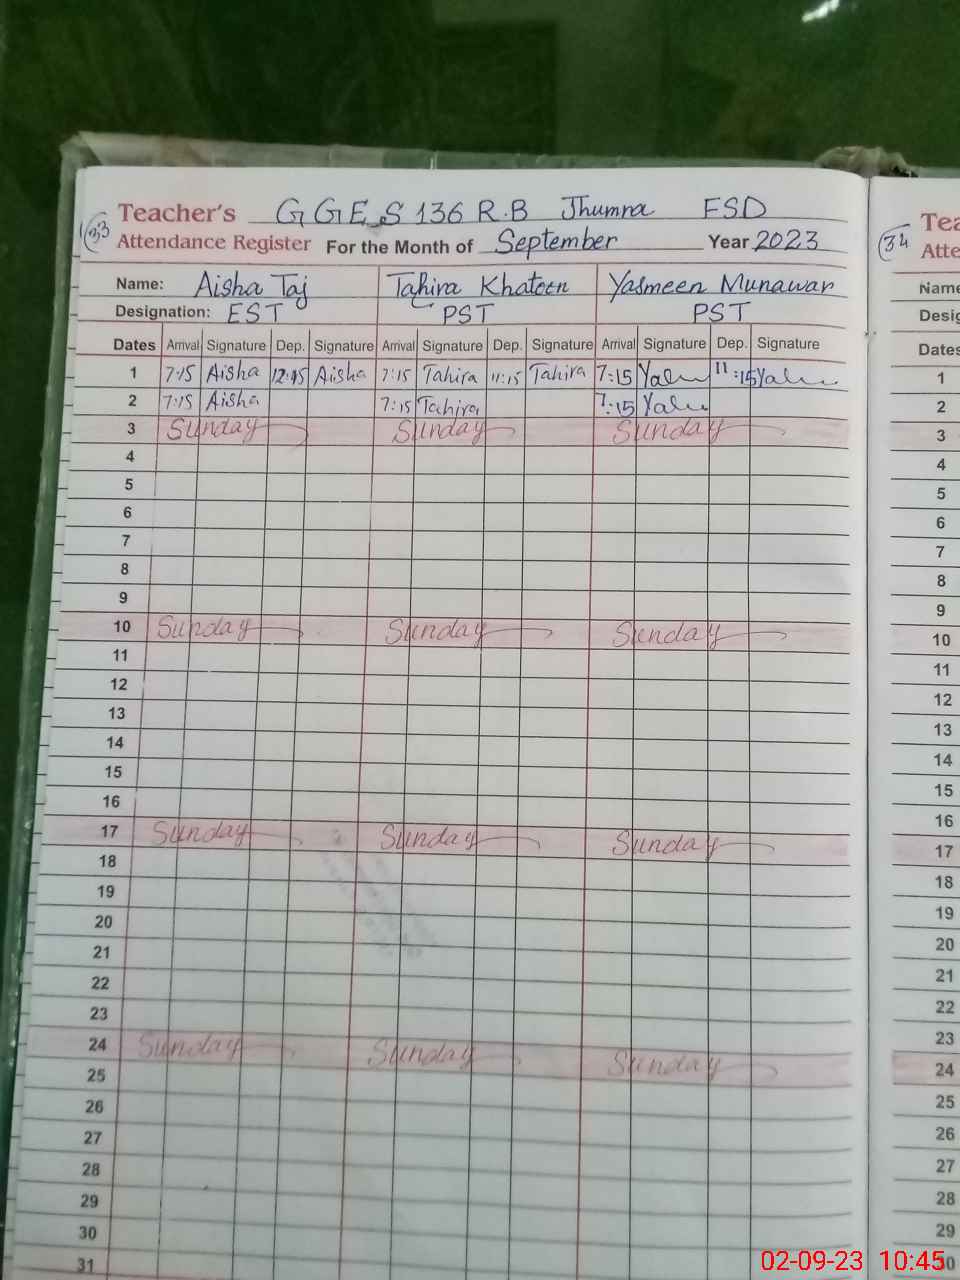 Teacher's GGES 136 R.B Jhumra FSD
33 Attendance Register For the Month of September Year 2023
Name: Aisha Taj Tahira Khatoon Yasmeen Munawar
Designation: EST PST PST
Dates Arrival Signature Dep. Signature Arrival Signature Dep. Signature Arrival Signature Dep. Signature
1 7:15 Aisha 12:45 Aisha 7:15 Tahira 11:15 Tahira 7:15 11:15
2 7:15 Aisha 7:15 Tahira 7:15
3 Sunday Sunday Sunday
4
5
6
7
8
9
10 Sunday Sunday Sunday
11
12
13
14
15
16
17 Sunday Sunday Sunday
18
19
20
21
22
23
24 Sunday Sunday Sunday
25
26
27
28
29
30
31
34 Tea
Atte
Name
Desig
Dates
1
2
3
4
5
6
7
8
9
10
11
12
13
14
15
16
17
18
19
20
21
22
23
24
25
26
27
28
29
30
02-09-23 10:45